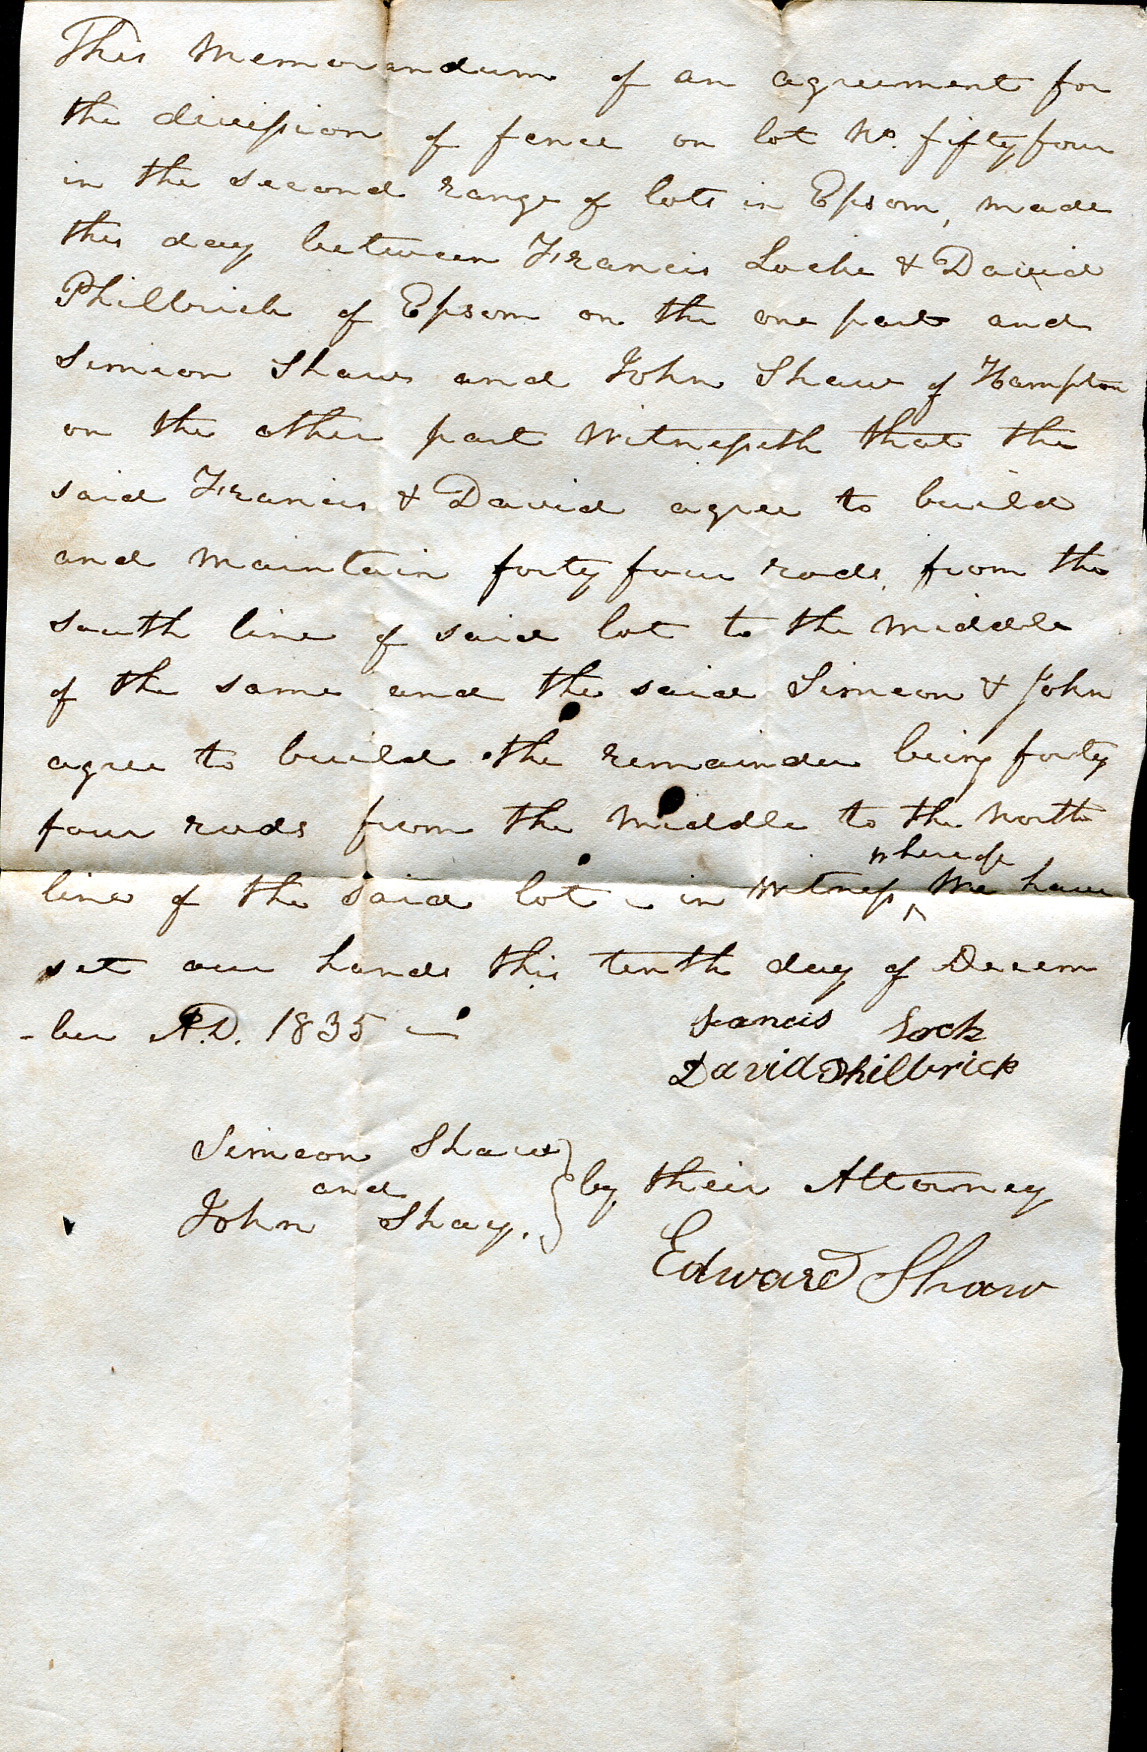 This Memorandum of an agreement for
the division of fence on lot No. fifty four
in the second range of lots in Epsom, made
this day between Francis Locke & David
Philbrick of Epsom on the one part and
Simeon Shaw and John Shaw of Hampton
on the other part Witnesseth that the
said Francis & David agree to build
and maintain forty four rods, from the
south line of said lot to the middle
of the same and the said Simeon & John
agree to build the remainder being forty
four rods from the middle to the North
whereof
line of the said lot – in Witness ^ We have
set our hands this tenth day of Decem
-ber A.D. 1835 —
Francis Lock
David Philbrick
Simeon Shaw
and } by their Attorney
John Shaw.
Edward Shaw